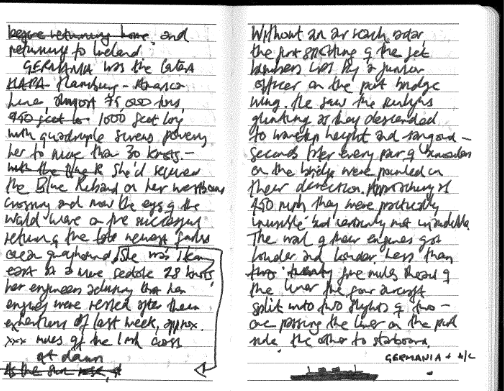 before returning home and
returning to Ireland.
GERMANIA was the latest
HAPA Hamburg - America
liner almost 75,000 tons,
950 feet 1000 feet long
with quadruple screws powering
her to more than 30 knots. -
She'd secured
the Blue Riband on her westbound
crossing and now the eyes of the
world were on the
return of the newest
ocean greyhound. She was
east at a more sedate 28 knots
her engineers that her
engines were rested after their
exertions of last week, approx.
xxx miles off the Irish coast
at dawn
As the sun rose,
Without an air search radar
the first sighting of the jet
bombers was by a junior
officer on the port bridge
wing. He saw the sunlight
glinting as they descended
to and
seconds later every pair of binoculars
on the bridge were pointed in
their direction. Approaching at
450 mph they were practically
invisible but certainly not inaudible
The wail of their engines got
louder and louder. Less than
two twenty five miles ahead of
the liner the four aircraft
split into two flights of two -
one passing the liner on the port
side the other to starboard.
GERMANIA + A/C